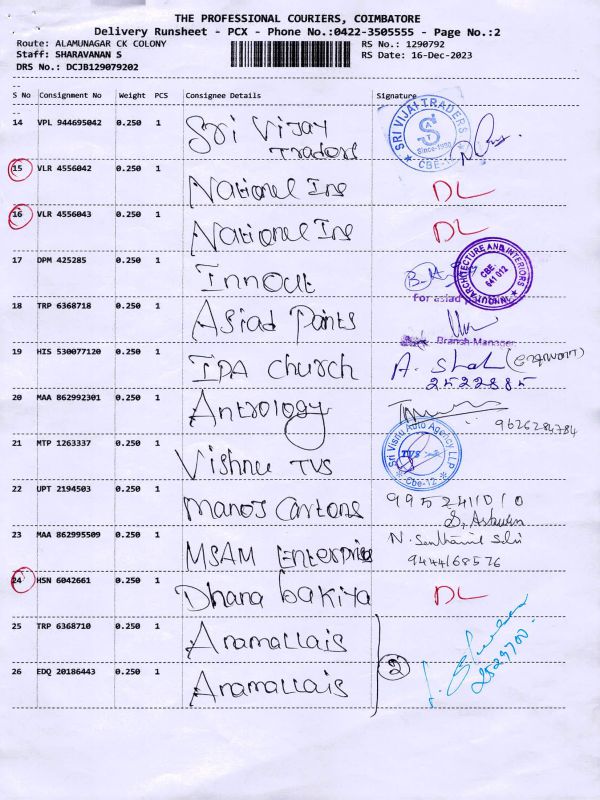 THE PROFESSIONAL COURIERS, COIMBATORE
Delivery Runsheet - PCX - Phone No.:0422-3505555 - Page No.:2
Route: ALAMUNAGAR CK COLONY RS No.: 1290792
Staff: SHARAVANAN S RS Date: 16-Dec-2023
DRS No.: DCJB129079202
S No Consignment No Weight PCS Consignee Details Signature
14 VPL 944695042 0.250 1 Sri Vijay Traders
SRI VIJAI TRADERS Since-1990 CBE
15 VLR 4556042 0.250 1 National Ins DL
16 VLR 4556043 0.250 1 National Ins DL
17 DPM 425285 0.250 1 Innout
INNOUT ARCHITECTURE AND INTERIORS CBE- 641 012
for asiad
18 TRP 6368718 0.250 1 Asiad Paints
Branch-Manager
19 HIS 530077120 0.250 1 IPA Church A. Shah
2522885
20 MAA 862992301 0.250 1 Antrology
9626284784
21 MTP 1263337 0.250 1 Vishnu TVS
Sri Vishnu Auto Agency LLP TVS Cbe-12
22 UPT 2194503 0.250 1 Manos Cartons 9952411010
S. Ashwin
23 MAA 862995509 0.250 1 MSAM Enterprise N. Senthamil Selvi
9444168576
24 HSN 6042661 0.250 1 Dhana bakiya DL
25 TRP 6368710 0.250 1 Anamallais
2
2529700
26 EDQ 20186443 0.250 1 Anamallais